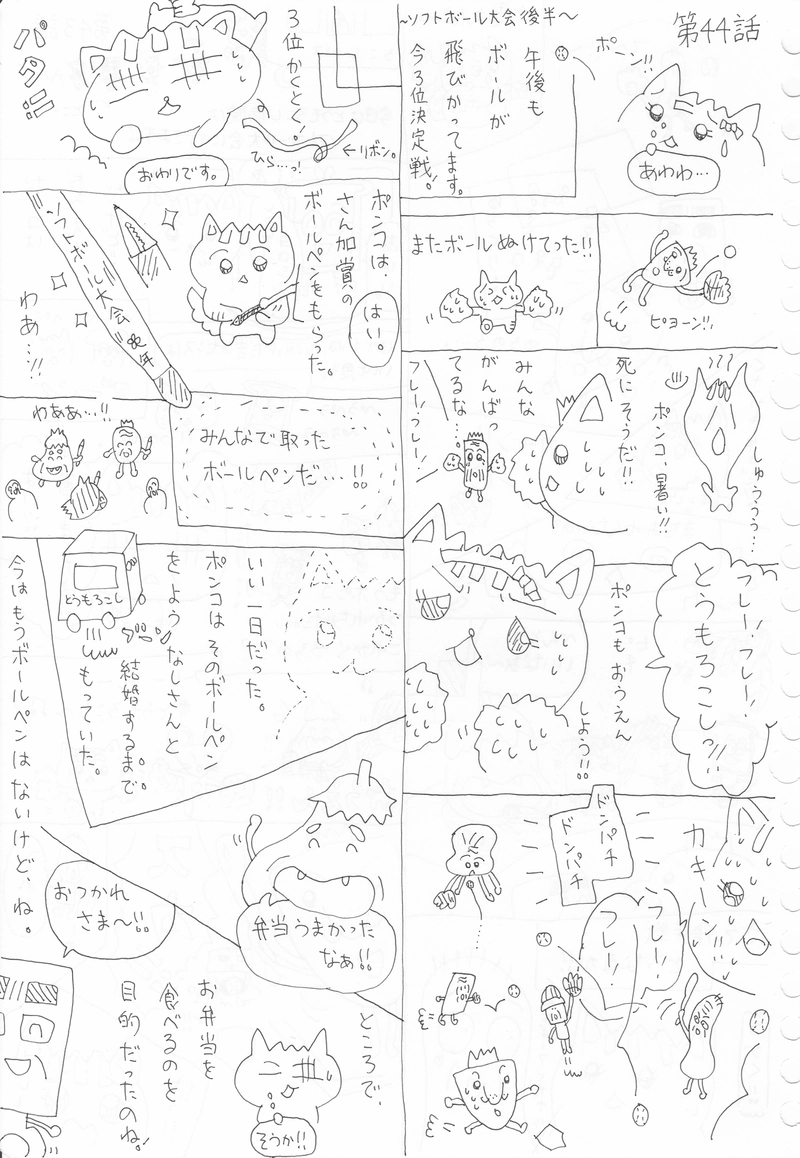 第44話
〜ソフトボール大会後半〜
ポーン!!
午後も
ボールが
飛びかってます。
今3位決定戦!!
あわわ…
ピヨーン!!
またボールぬけてった!!
しゅううう…
ポンコ、暑い!!
死にそうだ!!
みんな
がんばっ
てるな…
フレー!フレー!
フレー!フレー!
とうもろこしっ!!
ポンコもおうえん
しよう!!
カキーン!!
ドンパチ
ドンパチ
フレー!
フレー!
3位かくとく!
ひら…っ!
←リボン。
パタ!!
おわりです。
ポンコは、
さん加賞の
ボールペンをもらった。
はい。
ソフトボール大会
わあ…!!
みんなで取った
ボールペンだ…!!
わああ…!!
いい一日だった。
ポンコはそのボールペン
をようなしさんと
結婚するまで。
もっていた。
とうもろこし
今はもうボールペンはないけど、ね。
弁当うまかった
なぁ!!
おつかれ
さま〜!!
ところで、
お弁当を
食べるのを
目的だったのね!
そうか!!